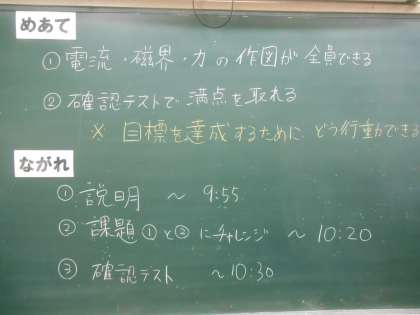 めあて
① 電流・磁界・力の作図が全員できる
② 確認テストで満点を取れる
※ 目標を達成するために どう行動できる
ながれ
① 説明 ～ 9:55
② 課題①と②にチャレンジ ～ 10:20
③ 確認テスト ～10:30